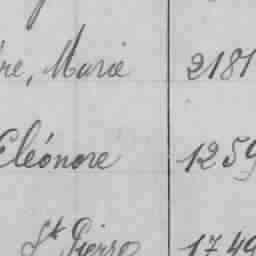 re, Marie 2181
Eléonore 1259
St Pierre 1749